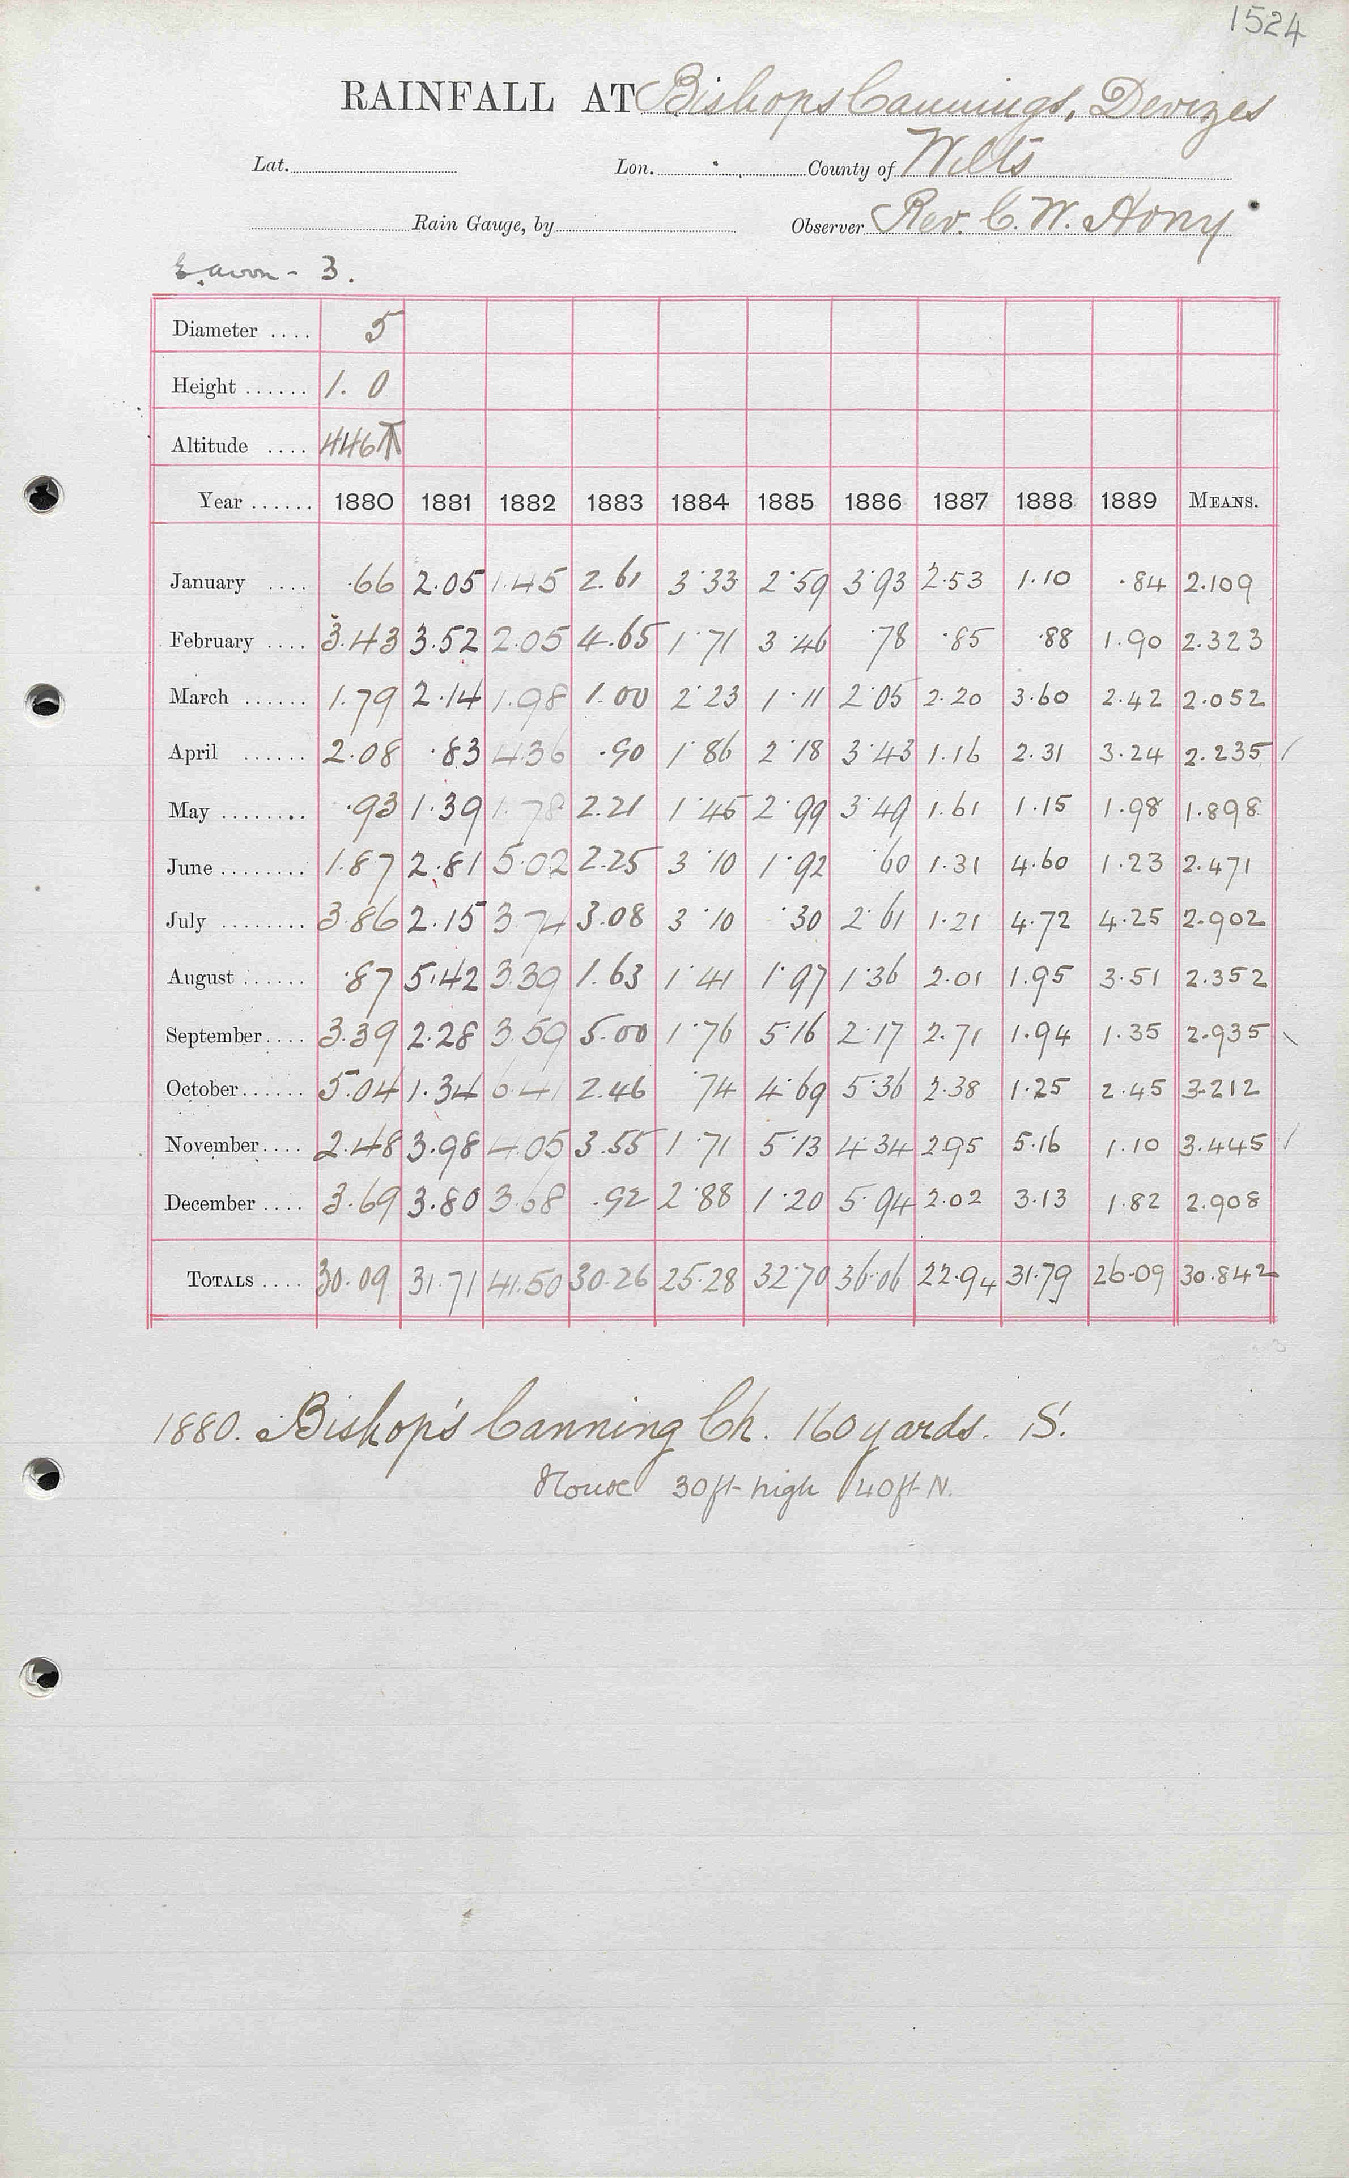 1524
RAINFALL AT Bishops Cannings, Devizes
Lat. Lon. County of Wilts
Rain Gauge, by Observer Rev. C. W. Hony
E. Avon - 3.
Diameter .... 5
Height ...... 1. 0
Altitude .... 446 T
Year ...... 1880 1881 1882 1883 1884 1885 1886 1887 1888 1889 MEANS.
January .... .66 2.05 1.45 2.61 3.33 2.59 3.93 2.53 1.10 .84 2.109
February .... 3.43 3.52 2.05 4.65 1.71 3.46 .78 .85 .88 1.90 2.323
March ...... 1.79 2.14 1.98 1.00 2.23 1.11 2.05 2.20 3.60 2.42 2.052
April ...... 2.08 .83 4.36 .90 1.86 2.18 3.43 1.16 2.31 3.24 2.235 /
May ........ .93 1.39 1.78 2.21 1.45 2.99 3.49 1.61 1.15 1.98 1.898
June ........ 1.87 2.81 5.02 2.25 3.10 1.92 .60 1.31 4.60 1.23 2.471
July ........ 3.86 2.15 3.74 3.08 3.10 .30 2.61 1.21 4.72 4.25 2.902
August ...... .87 5.42 3.39 1.63 1.41 1.97 1.36 2.01 1.95 3.51 2.352
September.... 3.39 2.28 3.59 5.00 1.76 5.16 2.17 2.71 1.94 1.35 2.935 \
October...... 5.04 1.34 6.41 2.46 .74 4.69 5.36 2.38 1.25 2.45 3.212
November.... 2.48 3.98 4.05 3.55 1.71 5.13 4.34 2.95 5.16 1.10 3.445 /
December .... 3.69 3.80 3.68 .92 2.88 1.20 5.94 2.02 3.13 1.82 2.908
TOTALS .... 30.09 31.71 41.50 30.26 25.28 32.70 36.06 22.94 31.79 26.09 30.842
1880. Bishop's Canning Ch. 160 yards. S.
House 30ft high 40ft N.